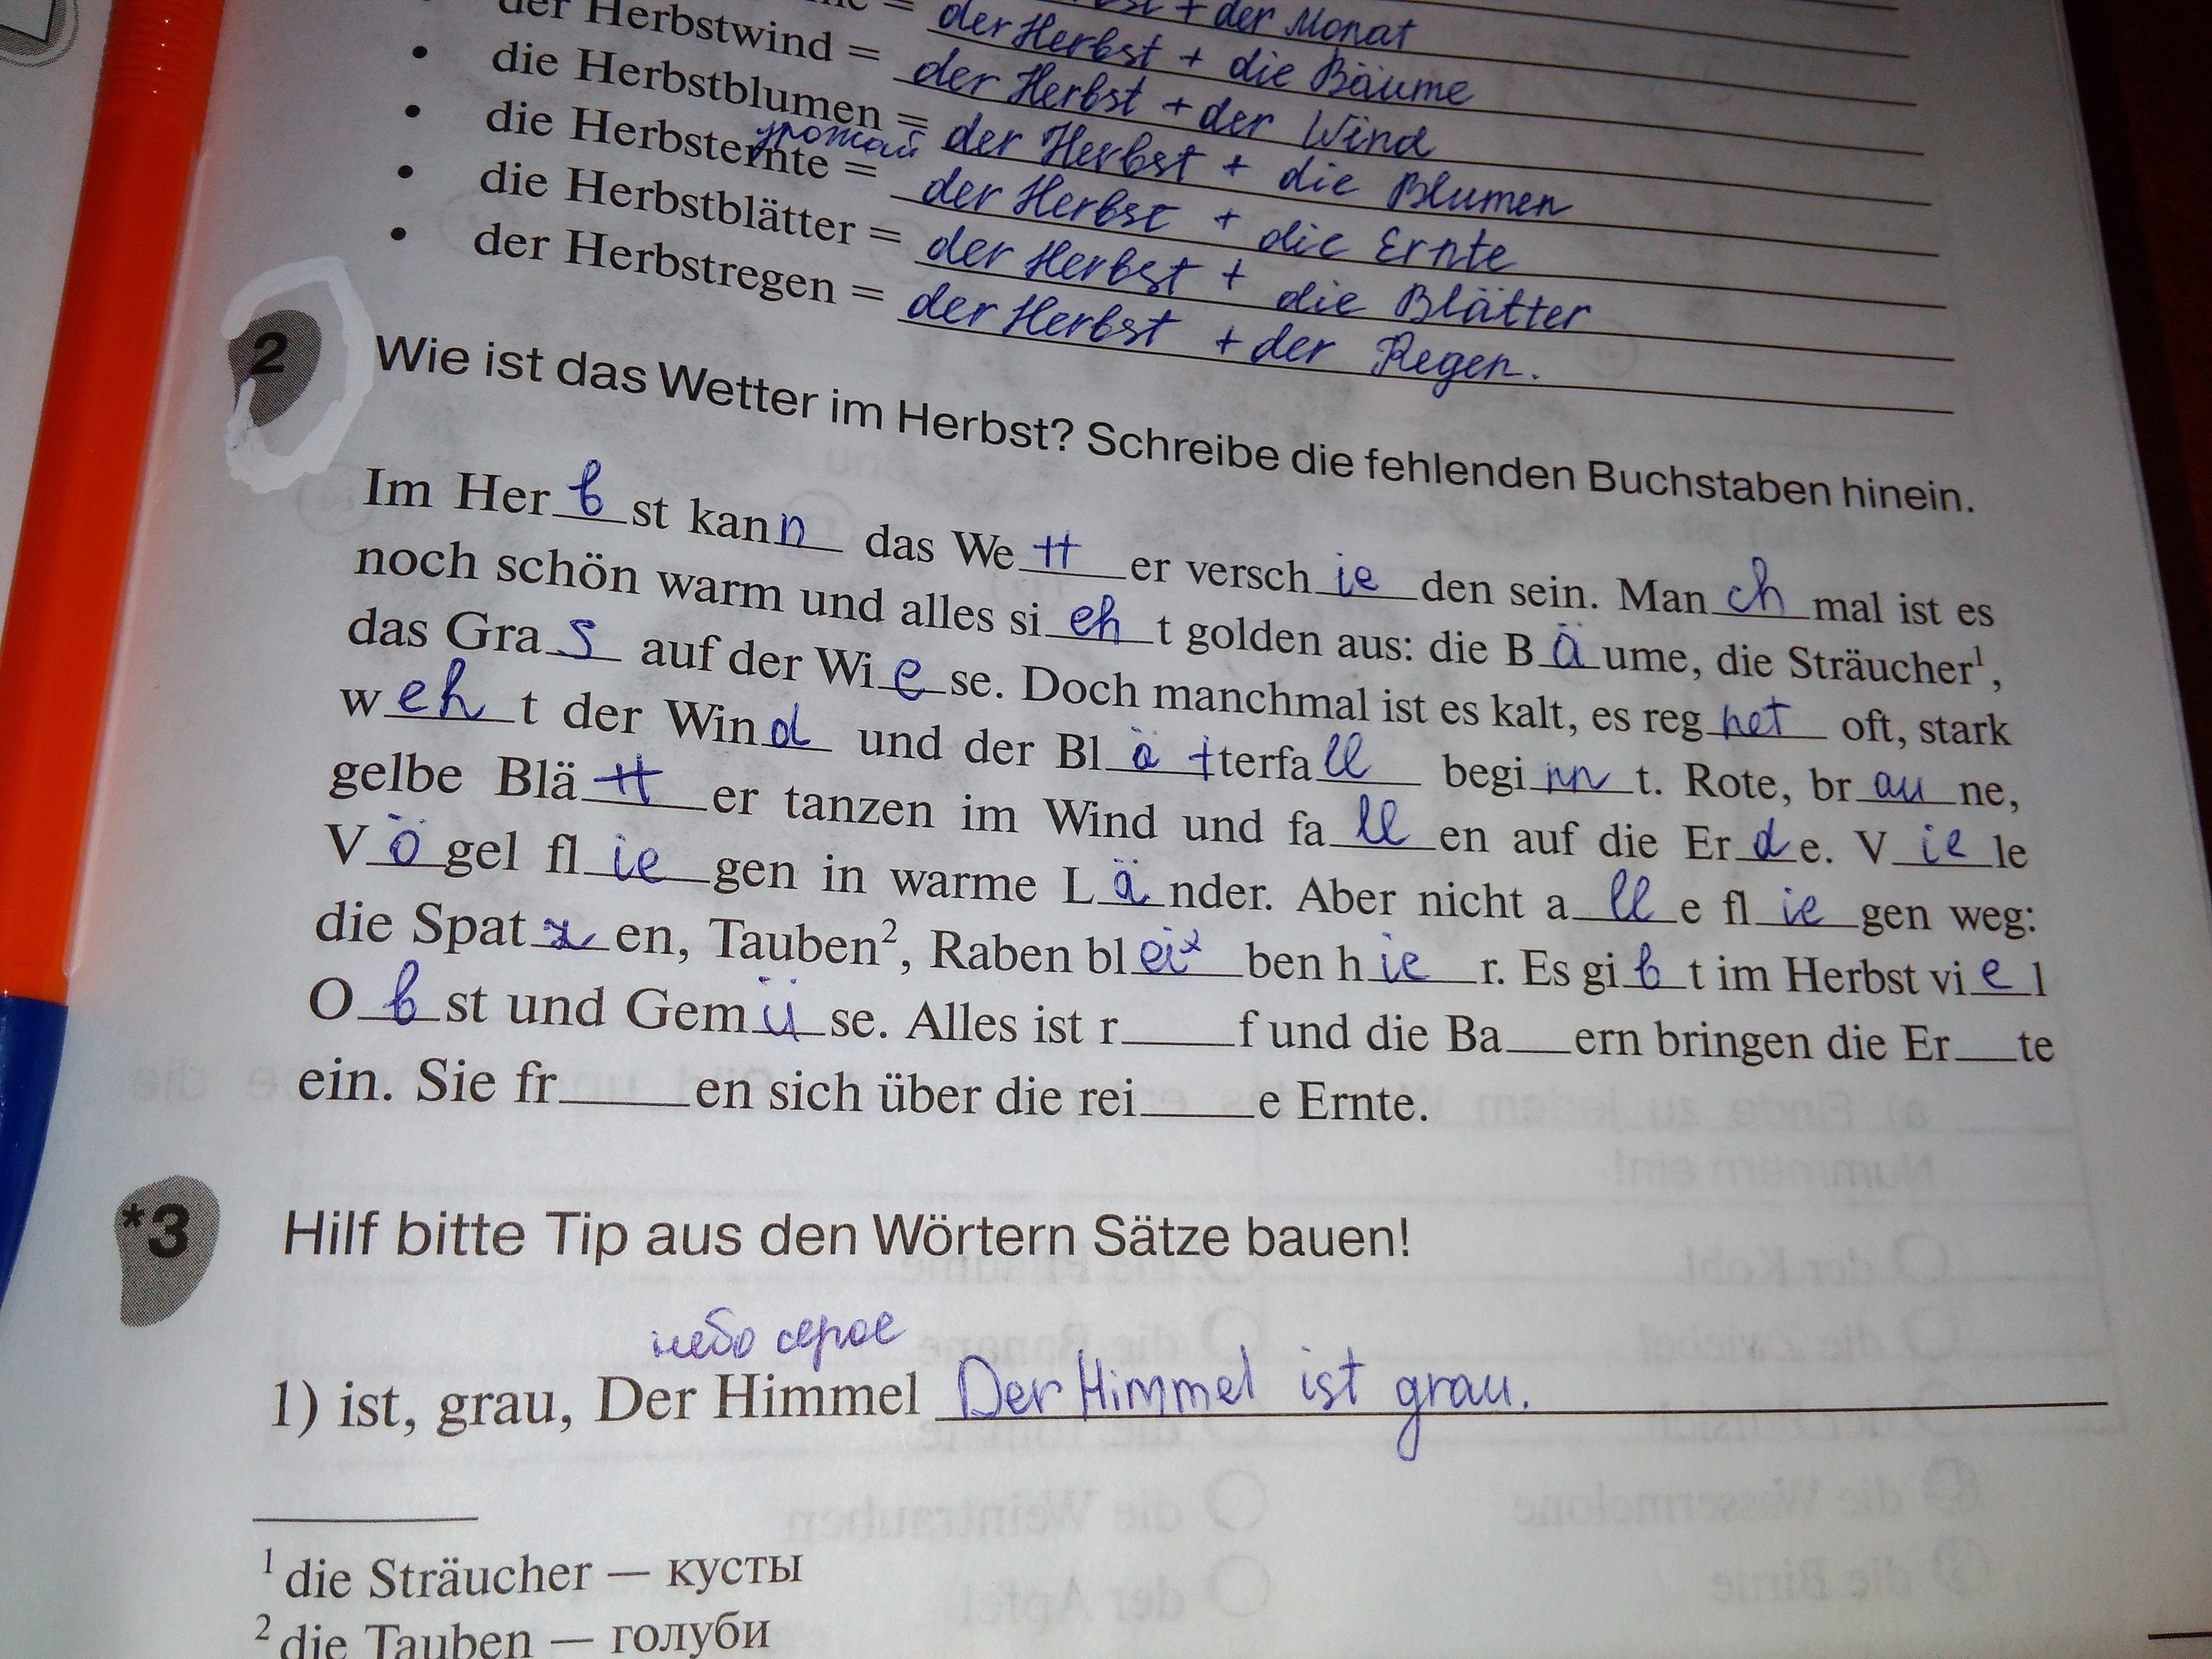 + der Monat
= der Herbst + die Bäume
der Herbstwind = der Herbst + der Wind
• die Herbstblumen = der Herbst + die Blumen
урожай
• die Herbsternte = der Herbst + die Ernte
• die Herbstblätter = der Herbst + die Blätter
• der Herbstregen = der Herbst + der Regen.
2 Wie ist das Wetter im Herbst? Schreibe die fehlenden Buchstaben hinein.
Im Her b st kann n das We tt er versch ie den sein. Man ch mal ist es
noch schön warm und alles si eh t golden aus: die B ä ume, die Sträucher¹,
das Gra s auf der Wi e se. Doch manchmal ist es kalt, es reg net oft, stark
w eh t der Win d und der Bl ä t terfa ll begi nn t. Rote, br au ne,
gelbe Blä tt er tanzen im Wind und fa ll en auf die Er d e. V ie le
V ö gel fl ie gen in warme L ä nder. Aber nicht a ll e fl ie gen weg:
die Spat z en, Tauben², Raben bl ei ben h ie r. Es gi b t im Herbst vi e l
O b st und Gem ü se. Alles ist r____f und die Ba__ern bringen die Er__te
ein. Sie fr____en sich über die rei____e Ernte.
*3 Hilf bitte Tip aus den Wörtern Sätze bauen!
небо серое
1) ist, grau, Der Himmel Der Himmel ist grau.
¹ die Sträucher — кусты
² die Tauben — голуби